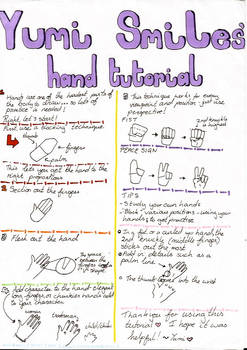 Yumi Smiles
hand tutorial
Hands are one of the hardest parts of
the body to draw... so lots of
practise is needed!
Right, let's start!
First, use a blocking technique
fingers
palm
This lets you get the hand to the
right proportions
Section out the fingers
Flesh out the hand
between the
fingers is
Add character to the hand: elegant
long fingers, or
to your character
woman
This technique works for every
viewpoint and position - just use
perspective!
FIST
2nd knuckle
is highest
PEACE SIGN
TIPS
- Study your own hands
- Block various positions - using your
hands to get proportions
- In a fist or a curled up hand, the
2nd knuckle (middle finger)
sticks out the most
- Add in details such as a
palm crease
- The thumb curves into the wrist
Thank you for using this
tutorial ♡ I hope it was
helpful! ~Yumi♡